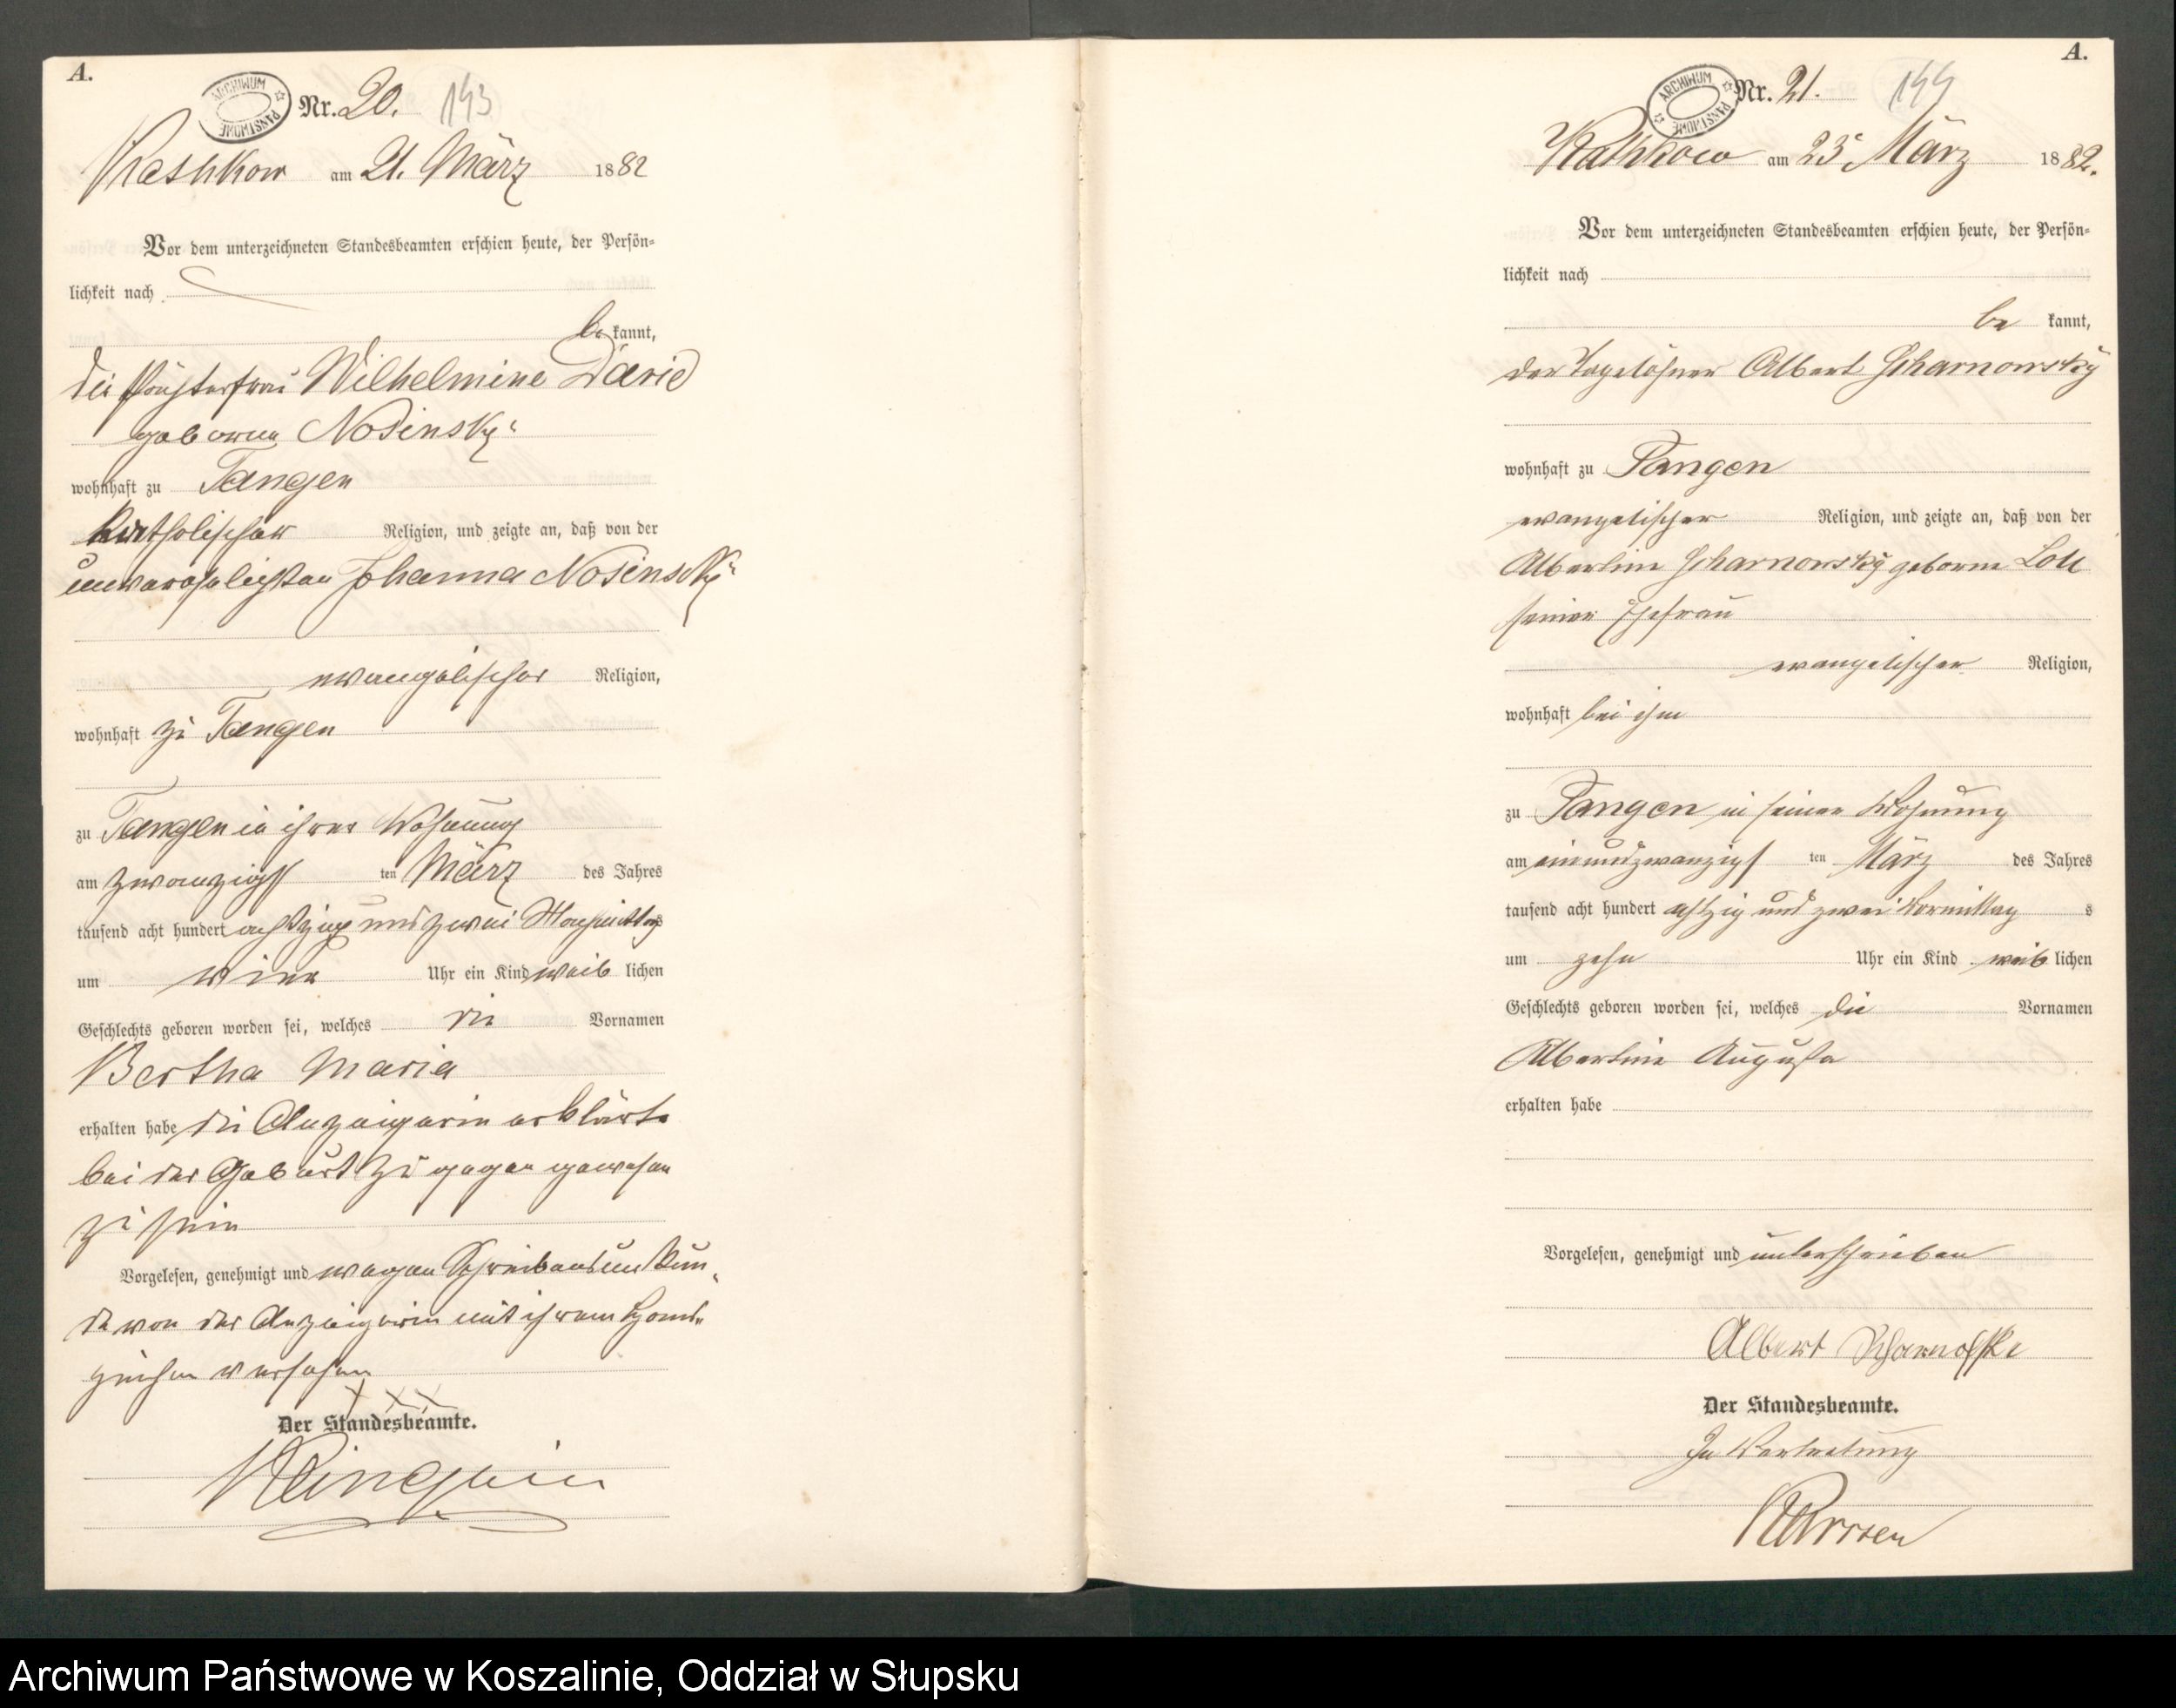 A.
ARCHIWUM PAŃSTWOWE
Nr. 20. 143
am 21. März 1882
Vor dem unterzeichneten Standesbeamten erschien heute, der Persön-
lichkeit nach
be kannt,
die Wilhelmine David
geborne Nosinsky
wohnhaft zu Tangen
katholischer Religion, und zeigte an, daß von der
unverehelichten Johanna Nosinsky
evangelischer Religion,
wohnhaft zu Tangen
zu Tangen in ihrer Wohnung
am zwanzigst ten März des Jahres
tausend acht hundert achtzig und zwei Nachmittags
um vier Uhr ein Kind weib lichen
Geschlechts geboren worden sei, welches die Vornamen
Bertha Maria
erhalten habe die Anzeigerin erklärte
bei der Geburt zugegen gewesen
zu sein
Vorgelesen, genehmigt und wegen Schreibensunkun-
de von der Anzeigerin mit ihrem Hand-
zeichen versehen
XXX
Der Standesbeamte.
A.
ARCHIWUM PAŃSTWOWE
Nr. 21. 144
am 23 März 1882.
Vor dem unterzeichneten Standesbeamten erschien heute, der Persön-
lichkeit nach
be kannt,
der Tagelöhner Albert Scharnowsky
wohnhaft zu Tangen
evangelischer Religion, und zeigte an, daß von der
Albertine Scharnowsky geborne
seiner Ehefrau
evangelischer Religion,
wohnhaft bei ihm
zu Tangen in seiner Wohnung
am einundzwanzigst ten März des Jahres
tausend acht hundert achtzig und zwei Vormittag s
um zehn Uhr ein Kind weib lichen
Geschlechts geboren worden sei, welches die Vornamen
Albertine Augusta
erhalten habe
Vorgelesen, genehmigt und unterschrieben
Albert Scharnofske
Der Standesbeamte.
In Vertretung
Archiwum Państwowe w Koszalinie, Oddział w Słupsku